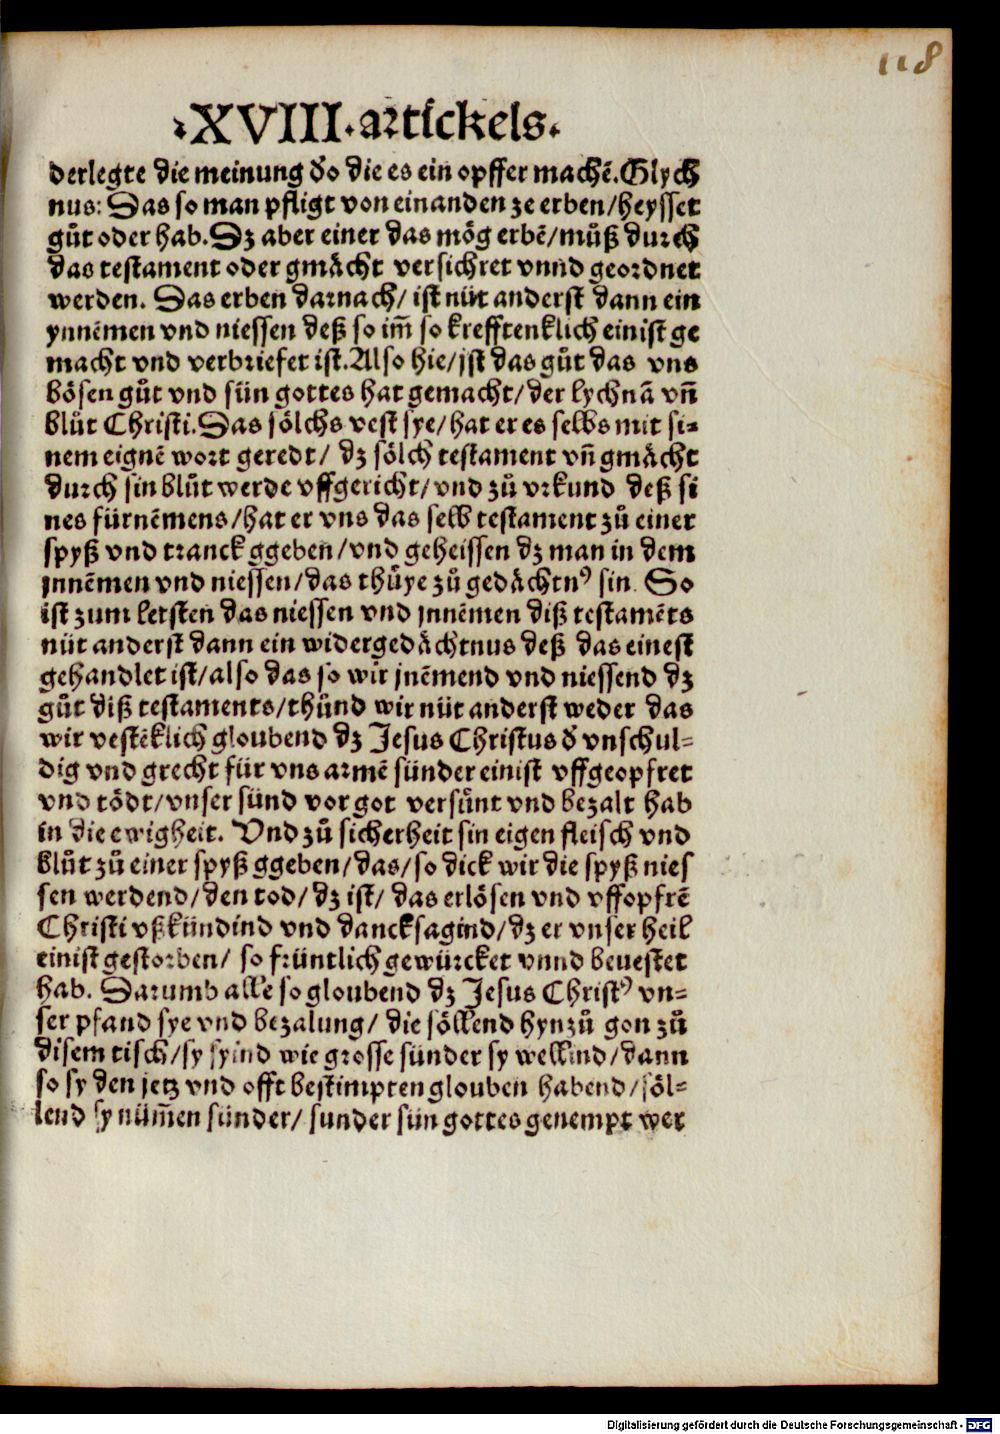 118
XVIII. artickels.
derlegte die meinung do die es ein opffer machē. Glych
nus: Das so man pfligt von einanden ze erben/heysset
gůt oder hab. Dz aber einer das mög erbē/můß durch
das testament oder gmächt versichret vnnd geordnet
werden. Das erben darnach/ ist nüt anderst dann ein
ynnēmen vnd niessen deß so im̄ so krefftenklich einist ge
macht vnd verbriefet ist. Also hie/jst das gůt das vns
bösen gůt vnd sün gottes hat gemacht/der lychnā vn̄
blůt Christi. Das sölchs vest sye/hat er es selbs mit si-
nem eignē wort geredt/ dz sölch testament vn̄ gmächt
durch sin blůt werde vffgericht/vnd zů vrkund deß si
nes fürnēmens/hat er vns das selb testament zů einer
spyß vnd tranck ggeben/vnd geheissen dz man in dem
jnnēmen vnd niessen/das thůye zů gedächtnꝰ sin. So
ist zum letsten das niessen vnd jnnēmen diß testamēts
nüt anderst dann ein widergedächtnus deß das einest
gehandlet ist/also das so wir jnēmend vnd niessend dz
gůt diß testaments/thůnd wir nüt anderst weder das
wir vestēklich gloubend dz Jesus Christus d vnschul-
dig vnd grecht für vns armē sünder einist vffgeopfret
vnd tödt/vnser sünd vor got versůnt vnd bezalt hab
in die ewigheit. Vnd zů sicherheit sin eigen fleisch vnd
blůt zů einer spyß ggeben/das/so dick wir die spyß nies
sen werdend/den tod/dz ist/ das erlösen vnd vffopfrē
Christi vßkündind vnd dancksagind/dz er vnser heil
einist gestorben/ so früntlich gewürcket vnnd beuestet
hab. Darumb alle so gloubend dz Jesus Christꝰ vn-
ser pfand sye vnd bezalung/ die söllend hynzů gon zů
disem tisch/sy syind wie grosse sünder sy wellind/dann
so sy den jetz vnd offt bestimpten glouben habend/söl-
lend sy nüm̄en sünder/ sunder sün gottes genempt wer
Digitalisierung gefördert durch die Deutsche Forschungsgemeinschaft - DFG